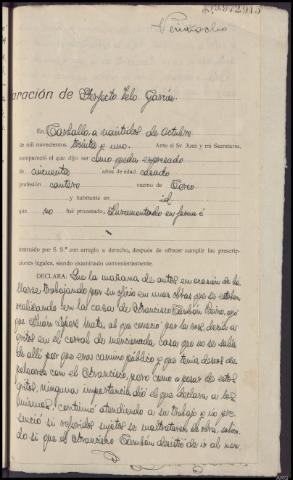 Declaración de Perfecto Velo García
En Carballo a veintidos de octubre
de mil novecientos treinta y uno. Ante el Sr. Juez y mi Secretario,
compareció el que dijo ser como queda expresado
de cincuenta años de edad casado
profesión cantero vecino de
y habitante en id
que no fué procesado, Juramentado en forma é
instruido por S. S.ª con arreglo a derecho, después de ofrecer cumplir las prescrip-
ciones legales, siendo examinado convenientemente.
DECLARA: Que la mañana de autos en ocasión de ha-
llarse trabajando por su oficio en unas obras que se estaban
realizando en la casa de Francisco oyó
que Juan al que conoció por la voz, decía a
gritos en el corral de mencionada casa que no se salía
de allí por que eras camino público y que tenía deseos de
pelearse con el Francisco, pero como a pesar de estos
gritos, ninguna importancia dió el que declara a los
mismos, continuó atendiendo a su trabajo y no pre-
senció si referidos sujetos se maltrataron de obra, notan-
do si que el Francisco dentró de ir al mer-